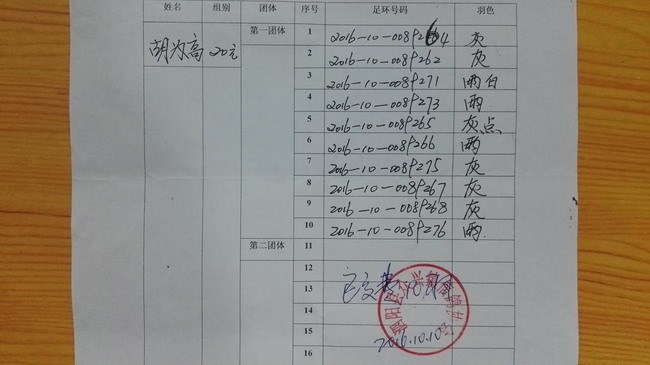 姓名 组别 团体 序号 足环号码 羽色
胡为高 20元 第一团体 1 2016-10-0089264 灰
2 2016-10-0089262 灰
3 2016-10-0089271 雨白
4 2016-10-0089273 雨
5 2016-10-0089265 灰点
6 2016-10-0089266 雨
7 2016-10-0089275 灰
8 2016-10-0089267 灰
9 2016-10-0089268 灰
10 2016-10-0089276 雨
第二团体 11
12
13
14
15
2016.10.10
16